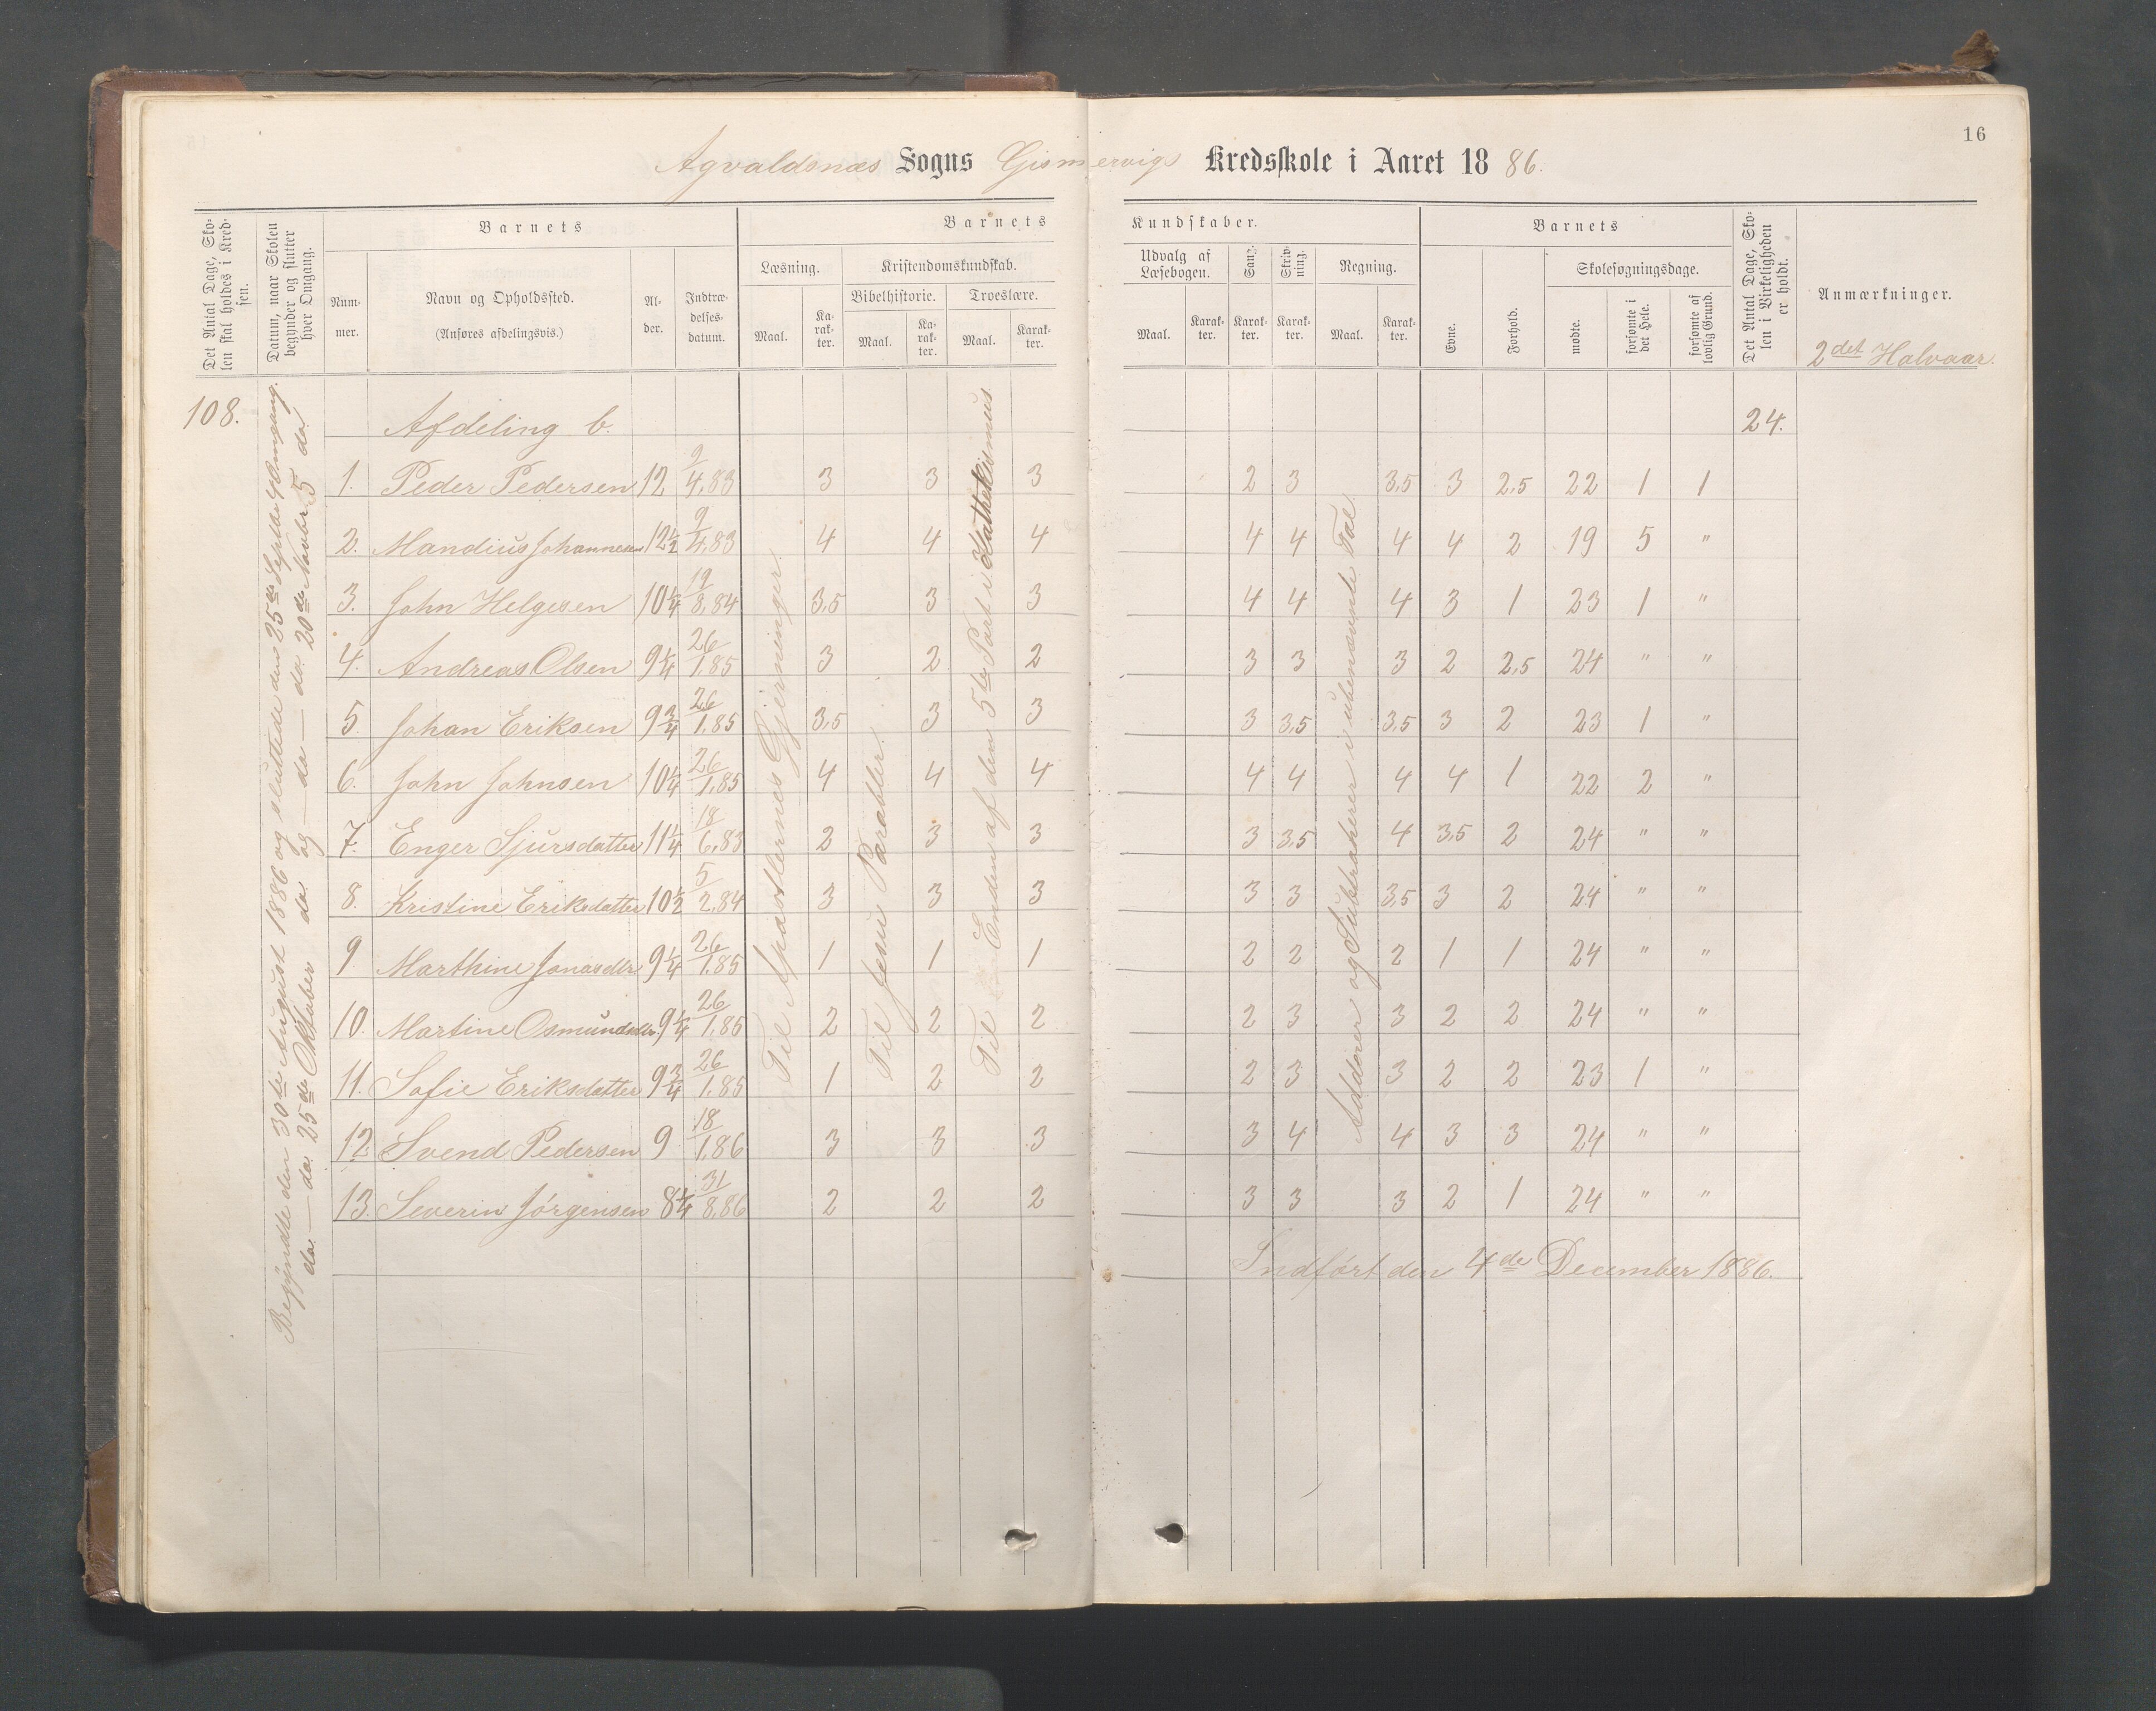 16
Agvaldsnæs Sogns Gismervigs Kredsskole i Aaret 1886.
Det Antal Dage, Skolen skal holdes i Kredsen.
Datum, naar Skolen begynder og slutter hver Omgang.
Barnets
Nummer.
Navn og Opholdssted.
(Anføres afdelingsvis.)
Alder.
Indtrædelsesdatum.
Barnets Kundskaber.
Læsning.
Maal.
Karakter.
Kristendomskundskab.
Bibelhistorie.
Maal.
Karakter.
Troeslære.
Maal.
Karakter.
Udvalg af Læsebogen.
Maal.
Karakter.
Sang.
Karakter.
Skrivning.
Karakter.
Regning.
Maal.
Karakter.
Barnets
Evne.
Forhold.
Skolesøgningsdage.
mødte.
forsømte i det Hele.
forsømte af lovlig Grund.
Det Antal Dage, Skolen i Virkeligheden er holdt.
Anmærkninger.
2det Halvaar.
108. Afdeling b. 24.
Begyndte den 30te August 1886 og sluttede den 25de Septbr 4 Omgang.
do. — do. 25de Oktober do. og — do — do. 20de Novbr 5 do.
Til Apostlernes Gjerninger.
Til Jesu Parabler.
Til Enden af den 5te Part i Kathekismus
Adderer og Subtraherer i ubenævnte Tal
1. Peder Pedersen 12 9/4.83 3 3 3 2 3 3,5 3 2,5 22 1 1
2. Mandius Johannesen 12 1/2 9/4.83 4 4 4 4 4 4 4 2 19 5 "
3. John Helgesen 10 1/4 19/8.84 3,5 3 3 4 4 4 3 1 23 1 "
4. Andreas Olsen 9 1/4 26/1.85 3 2 2 3 3 3 2 2,5 24 " "
5. Johan Eriksen 9 3/4 26/1.85 3,5 3 3 3 3,5 3,5 3 2 23 1 "
6. John Johnsen 10 1/4 26/1.85 4 4 4 4 4 4 4 1 22 2 "
7. Enger Sjursdatter 11 1/4 18/6.83 2 3 3 3 3,5 4 3,5 2 24 " "
8. Kristine Eriksdatter 10 1/2 5/2.84 3 3 3 3 3 3,5 3 2 24 " "
9. Marthine Jonasdtr 9 1/4 26/1.85 1 1 1 2 2 2 1 1 24 " "
10. Martine Osmundsdtr. 9 1/4 26/1.85 2 2 2 2 3 3 2 2 24 " "
11. Sofie Eriksdatter 9 3/4 26/1.85 1 2 2 2 3 3 2 2 23 1 "
12. Svend Pedersen 9 18/1.86 3 3 3 3 4 4 3 3 24 " "
13. Severin Jørgensen 8 1/4 31/8.86 2 2 2 3 3 3 2 1 24 " "
Indført den 4de December 1886.